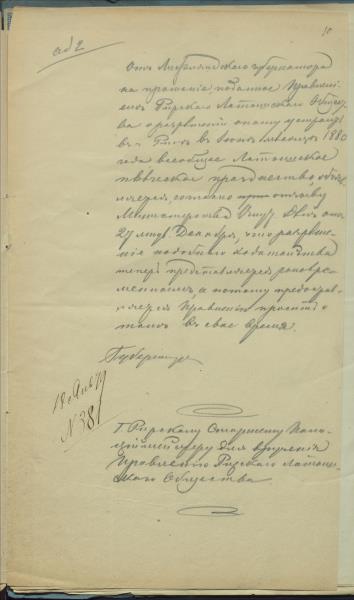 10
ад 2
Отъ Лифляндскаго Губернатора
на прошеніе, поданное Правлені-
емъ Рижскаго Латышскаго Общест-
ва о разрѣшеніи оному устроить
въ г. Ригѣ въ Іюнѣ мѣсяцѣ 1880
года всеобщее Латышское
пѣвческое празднество, объя-
вляется, согласно отзыву
Министерства Внут. Дѣлъ отъ
27 мин. Декабря, что разрѣше-
ніе подобныхъ ходатайствъ
теперь представляется преждевре-
меннымъ, а потому предостав-
ляется Правленію просить о
томъ въ свое время.
Губернаторъ
18 Янв 79
N 381
Г. Рижскому Старшему Поли-
ціймейстеру для врученія
Правленію Рижскаго Латыш-
скаго Общества